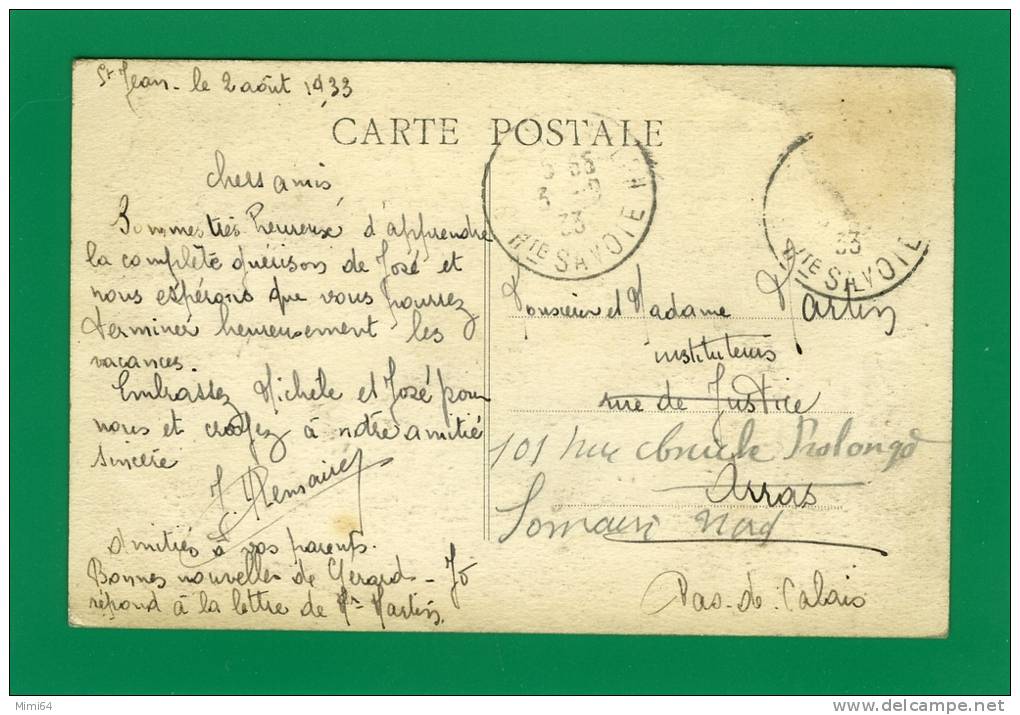 St Jean - le 2 août 1933
CARTE POSTALE
Chers amis
Sommes très heureux d'apprendre
la complète guérison de José et
nous espérons que vous pourrez
terminer heureusement les
vacances.
Embrassez Michèle et José pour
nous et croyez à notre amitié
sincère
Amitiés à vos parents.
Bonnes nouvelles de Gérard - Jo
répond à la lettre de Mr Martin.
33
Hte SAVOIE
33
Hte SAVOIE
Monsieur et Madame Martin
instituteurs
rue de Justice
101 rue Prolongé
Arras
Somain Nord
Pas-de-Calais
Mimi64
www.delcampe.net